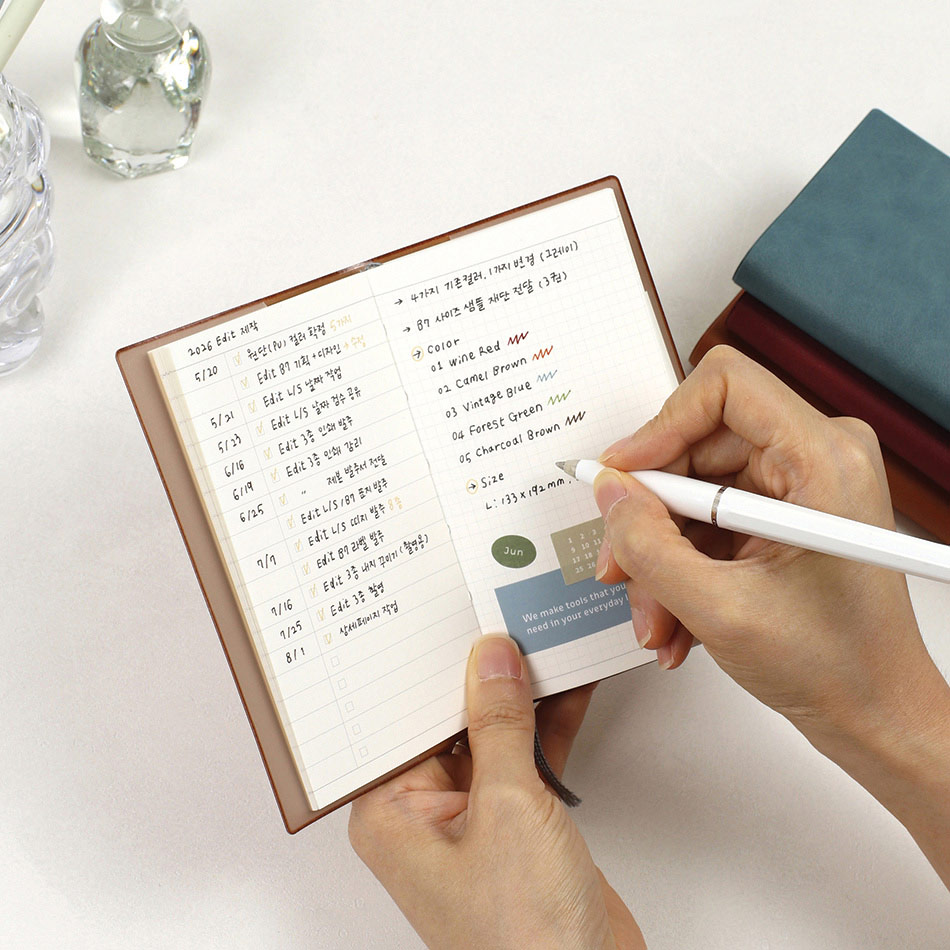 2026 Edit 제작
5/20 원단(PU) 컬러 확정 5가지
Edit B7 기획+디자인 + 수정
Edit L/S 날짜 작업
5/21 Edit L/S 날짜 검수 공유
5/23 Edit 3종 인쇄 발주
6/16 Edit 3종 인쇄 감리
6/19 〃 제본 발주서 전달
6/25 Edit L/S/B7 표지 발주
Edit L/S 띠지 발주 8종
7/7 Edit B7 라벨 발주
Edit 3종 내지 꾸미기 (촬영용)
7/16 Edit 3종 촬영
7/25 상세페이지 작업
8/1
→ 4가지 기존컬러, 1가지 변경 (그레이)
→ B7 사이즈 샘플 재단 전달 (3권)
→ Color
01 Wine Red
02 Camel Brown
03 Vintage Blue
04 Forest Green
05 Charcoal Brown
→ Size
L: 133 x 192mm,
Jun
1 2 3
9 10 11
17 18
25
We make tools that you
need in your everyday